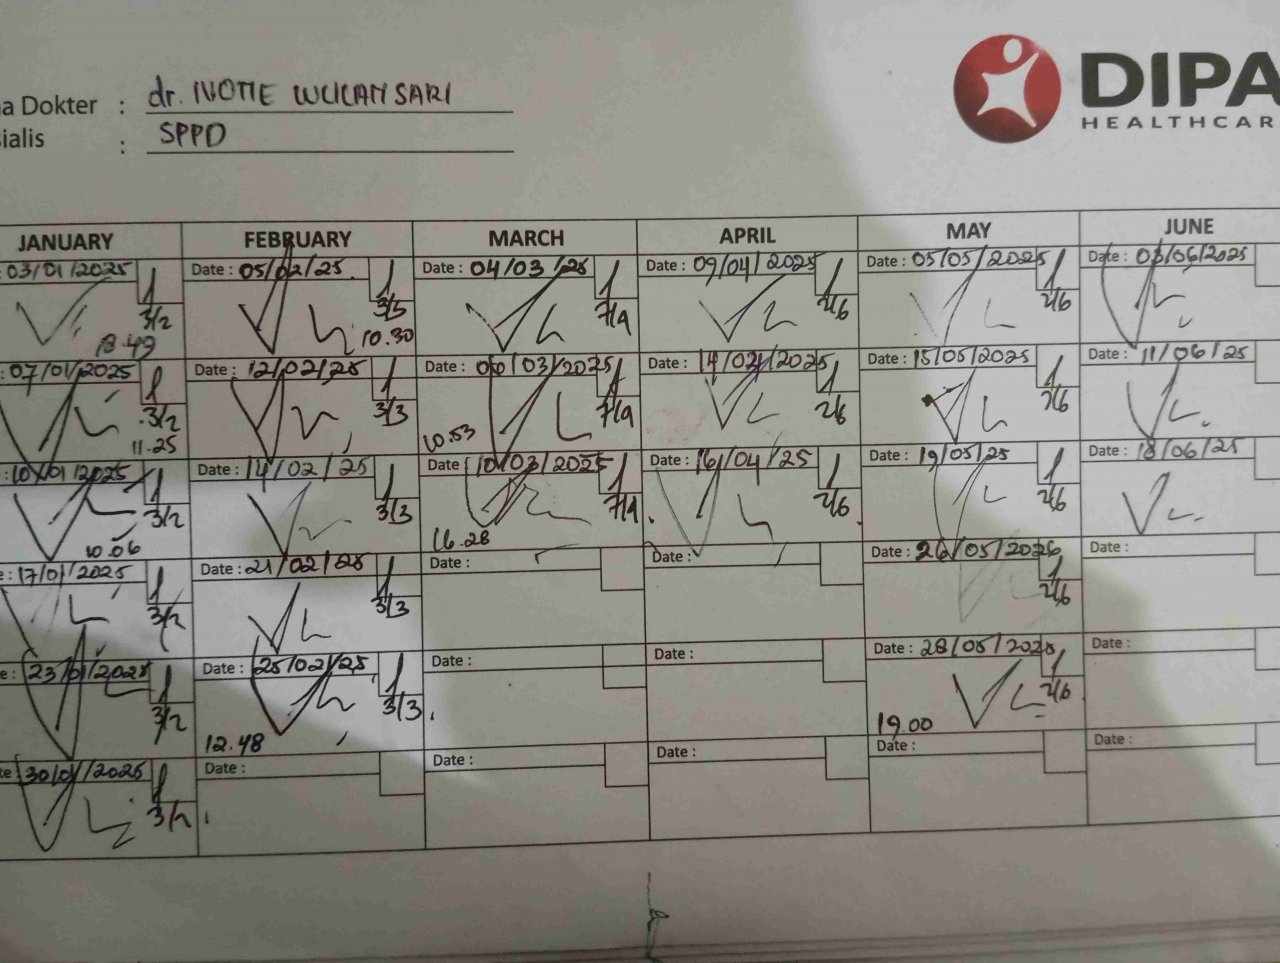 a Dokter : dr. IVONE WULANSARI
ialis : SPPD
DIPA
HEALTHCAR
JANUARY FEBRUARY MARCH APRIL MAY JUNE
: 03/01/2025 Date : 05/02/25 Date : 04/03/25 Date : 09/04/2025 Date : 05/05/2025 Date : 03/06/2025
3/2 3/3 7/4 2/6 2/6
18.49 10.30
: 07/01/2025 Date : 12/02/25 Date : 06/03/2025 Date : 14/04/2025 Date : 15/05/2025 Date : 11/06/25
3/2 3/3 7/4 2/6 2/6
11.25 10.53
: 10/01/2025 Date : 14/02/25 Date : 10/03/2025 Date : 16/04/25 Date : 19/05/25 Date : 18/06/25
3/2 3/3 7/4 2/6 2/6
10.06 16.28
e : 17/01/2025 Date : 21/02/25 Date : Date : Date : 26/05/2025 Date :
3/2 3/3 2/6
e : 23/01/2025 Date : 25/02/25 Date : Date : Date : 28/05/2025 Date :
3/2 3/3 2/6
12.48 19.00
te : 30/01/2025 Date : Date : Date : Date : Date :
3/2